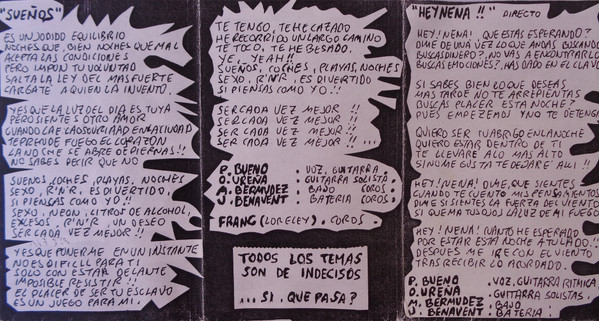 "SUEÑOS"
ES UN JODIDO EQUILIBRIO
NOCHES QUE, BIEN NOCHES QUE MAL
ACEPTA LAS CONDICIONES
PERO IMPON TU VOLUNTAD
SALTA LA LEY DEL MAS FUERTE
CARGATE A QUIEN LA INVENTO.
Y ES QUE LA LUZ DEL DIA ES TUYA
PERO SIENTES OTRO AMOR
CUANDO CAE LA OSCURIDAD EN LA CIUDAD
TE PRENDE FUEGO EL CORAZON
LA NOCHE SE ABRE DE PIERNAS!!
NO SABES DECIR QUE NO
SUEÑOS, COCHES, PLAYAS, NOCHES
SEXO, R'N'R, ES DIVERTIDO,
SI PIENSAS COMO YO!!
SEXO, NEON, LITROS DE ALCOHOL,
EXCESOS, R'N'R, UN DESEO
SER CADA VEZ MEJOR!!
Y ES QUE PONERME EN UN INSTANTE
NO ES DIFICIL PARA TI
SOLO CON ESTAR DELANTE
IMPOSIBLE RESISTIR!!
EL PLACER DE SER TU ESCLAVO
ES UN JUEGO PARA MI.
TE TENGO, TE HE CAZADO
HE RECORRIDO UN LARGO CAMINO
TE TOCO, TE HE BESADO,
YE, YEAH!!
SUEÑOS, COCHES, PLAYAS, NOCHES
SEXO, R'N'R, ES DIVERTIDO
SI PIENSAS COMO YO!!
SER CADA VEZ MEJOR !!
SER CADA VEZ MEJOR !!
SER CADA VEZ MEJOR !!
SER CADA VEZ MEJOR !! ...
P. BUENO . VOZ, GUITARRA
O. UREÑA . GUITARRA SOLISTA
M. BERMUDEZ . BAJO COROS.
J. BENAVENT . BATERIA COROS.
FRANC (LORELEY) . COROS.
TODOS LOS TEMAS
SON DE INDECISOS
... SI, QUE PASA?
"HEY NENA !!" DIRECTO
HEY! NENA! QUE ESTAS ESPERANDO?
DIME DE UNA VEZ LO QUE ANDAS BUSCANDO
BUSCAS DINERO? NO VAS A ENCONTRARLO
BUSCAS EMOCIONES?, HAS DADO EN EL CLAVO
SI SABES BIEN LO QUE DESEAS
MAS TARDE NO TE ARREPIENTAS
BUSCAS PLACER ESTA NOCHE?
PUES EMPEZEMOS Y NO TE DETENGAS
QUIERO SER TU ABRIGO EN LA NOCHE
QUIERO ESTAR DENTRO DE TI
TE LLEVARE A LO MAS ALTO
SI NO ME GUSTA TE DEJARE ALLI !!
HEY! NENA! DIME, QUE SIENTES
CUANDO TE CUENTO MIS PENSAMIENTOS
DIME SI SIENTES LA FUERZA DEL VIENTO
SI QUEMA TUS OJOS LA LUZ DE MI FUEGO
HEY! NENA! CUANTO HE ESPERADO
POR ESTAR ESTA NOCHE A TU LADO!!
DESPUES ME IRE CON EL VIENTO
TRAS RECIBIR LO ACORDADO.
P. BUENO . VOZ, GUITARRA RITMICA
O. UREÑA . GUITARRA SOLISTAS.
M. BERMUDEZ . BAJO
J. BENAVENT . BATERIA